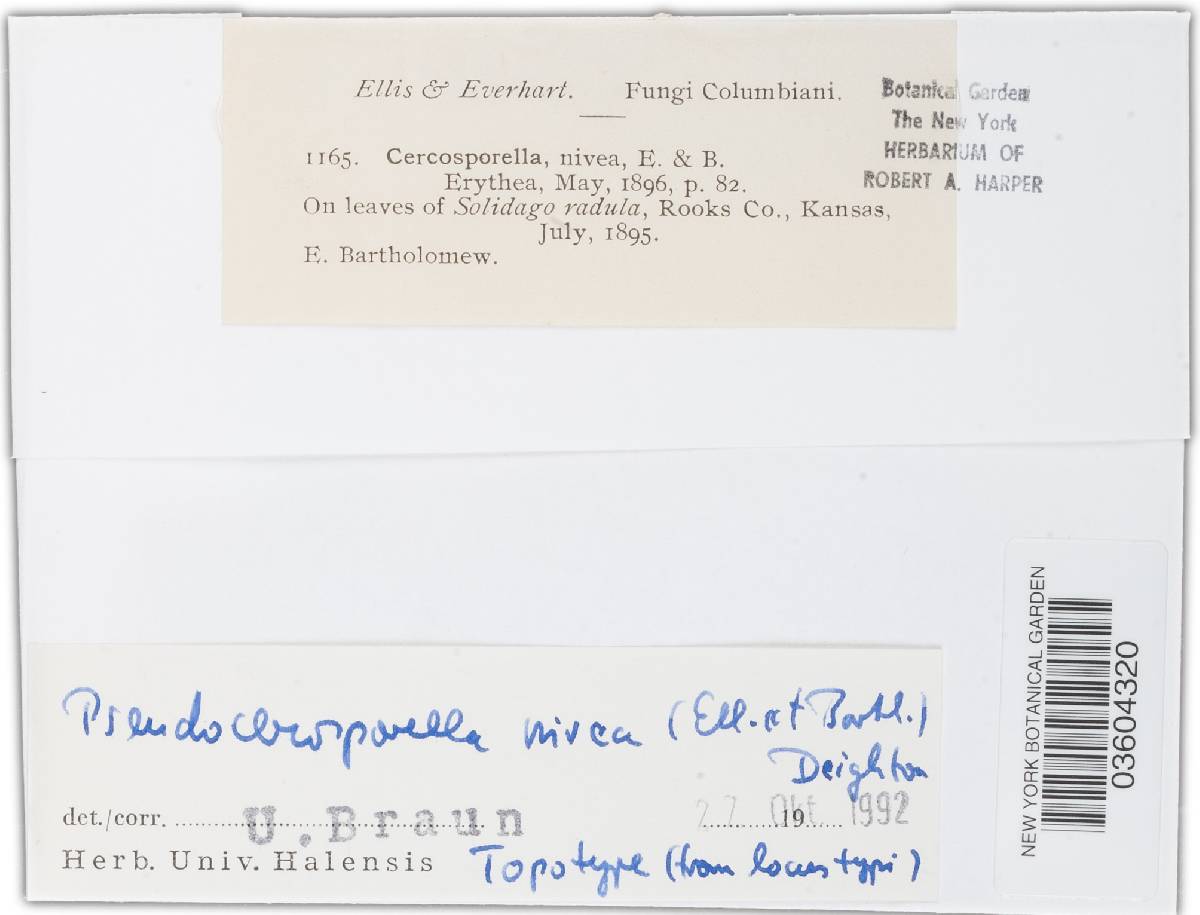 Ellis & Everhart. Fungi Columbiani.
1165. Cercosporella, nivea, E. & B.
Erythea, May, 1896, p. 82.
On leaves of Solidago radula, Rooks Co., Kansas,
July, 1895.
E. Bartholomew.
Botanical Garden
The New York
HERBARIUM OF
ROBERT A. HARPER
Pseudocercosporella nivea (Ell. et Barth.)
Deighton
det./corr. U. Braun 27. Okt. 1992 19
Herb. Univ. Halensis Topotype (from locus typi)
NEW YORK BOTANICAL GARDEN
03604320